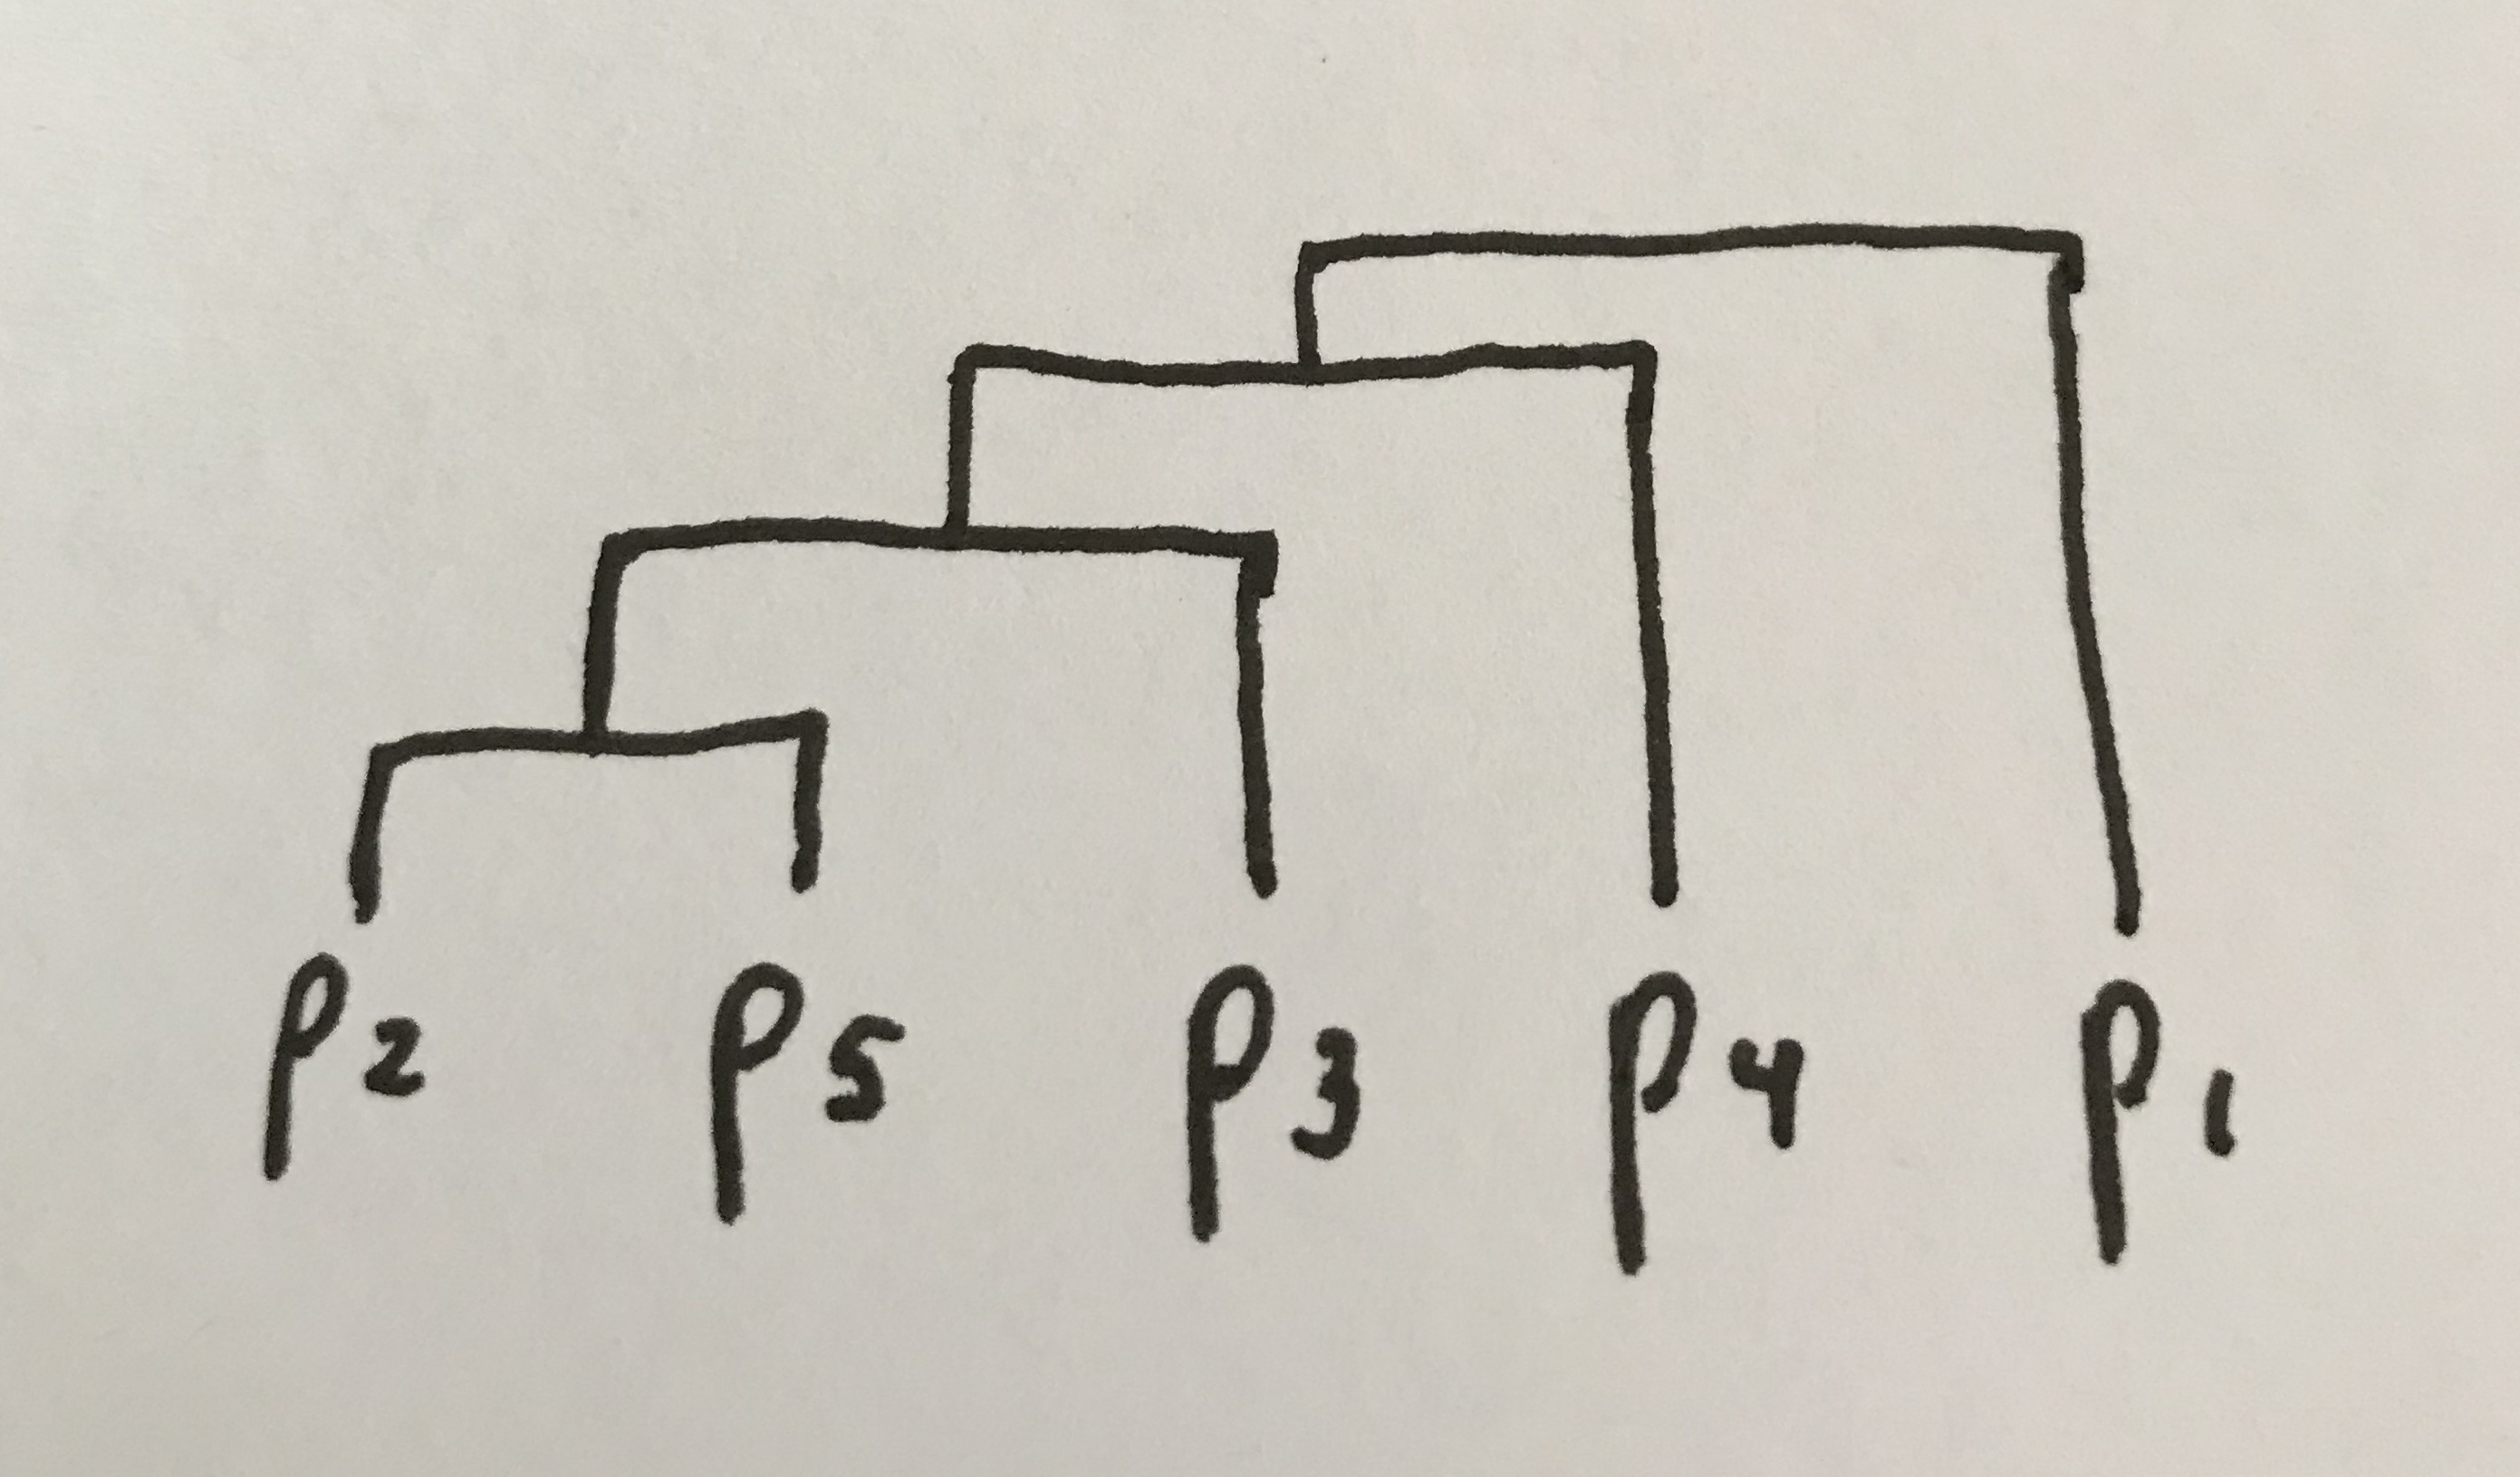 P2 P5 P3 P4 P1